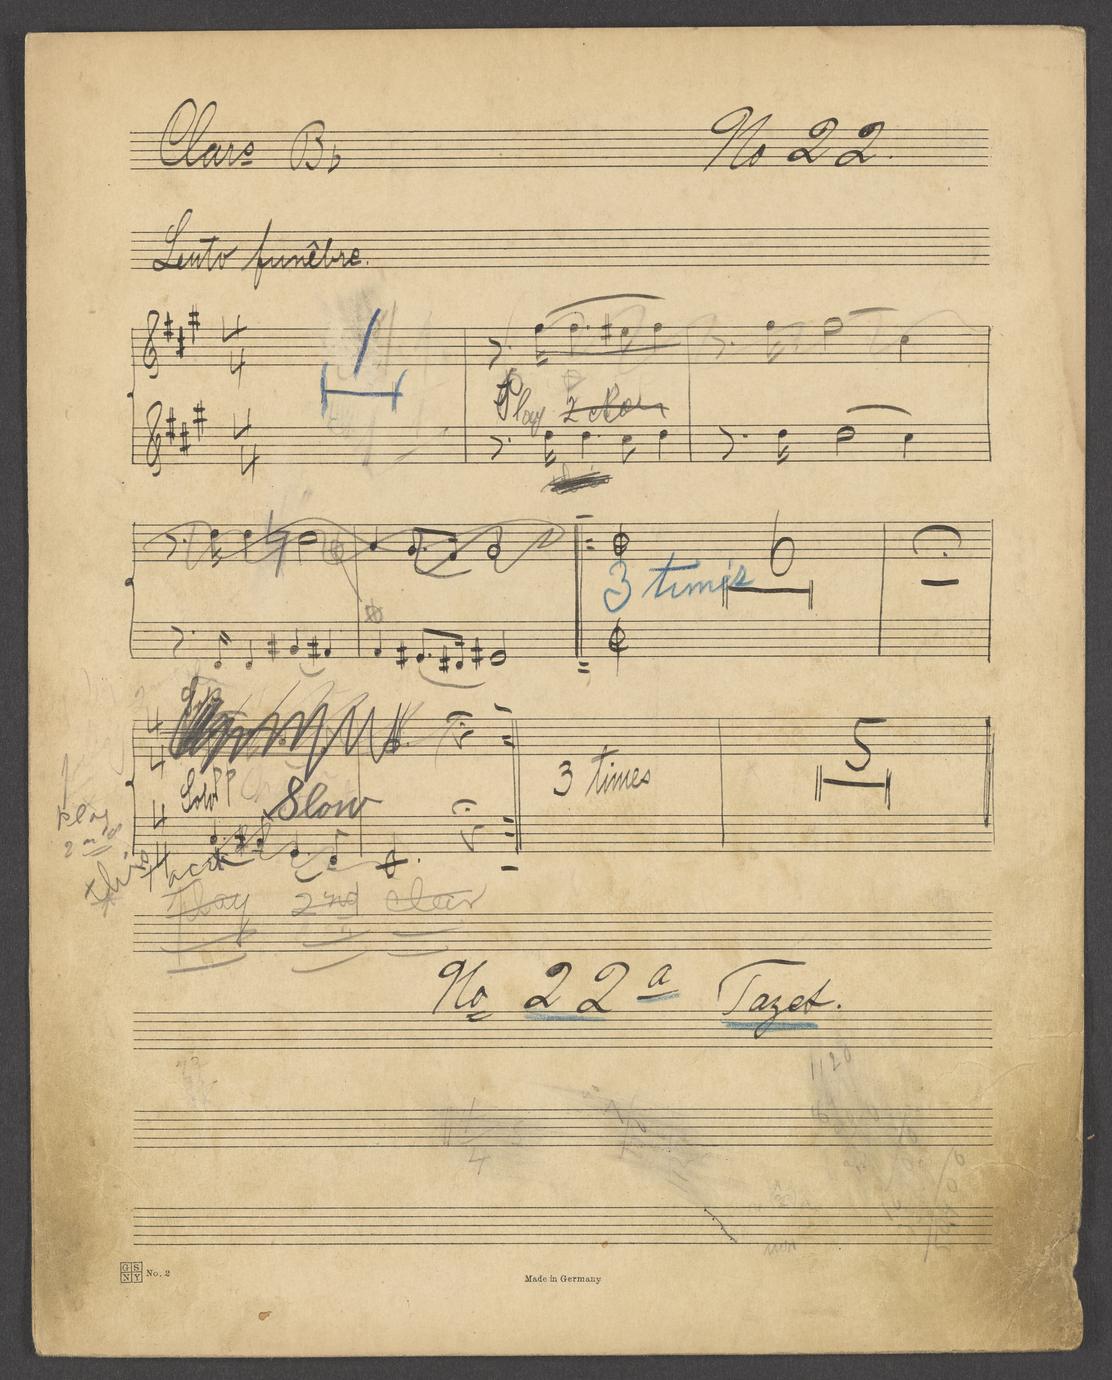 Clars B♭ No 22.
Lento funèbre.
4 4 1
Play 2 clar
4 4
6
3 times
4 4
Solo PP
Slow
3 times 5
4 4
play 2nd this
Tacet
Play 2nd clar
No 22a Tazet.
1120
4
G S N Y No. 2 Made in Germany